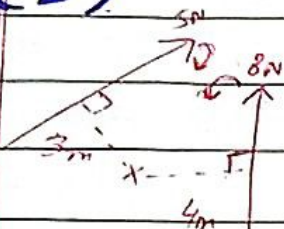 5N
8N
3m
x
4m